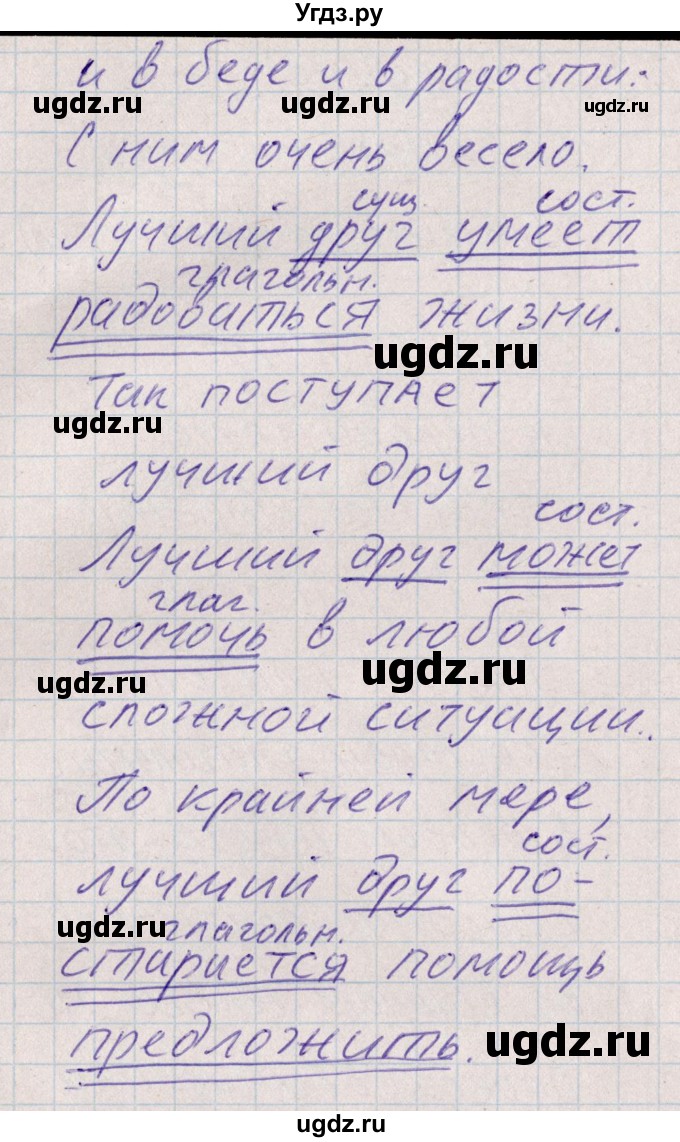 Угдз.ру
и в беде и в радости.
ugdz.ru ugdz.ru ugdz.ru
С ним очень весело.
сущ. сост.
Лучший друг умеет
глагольн.
радоваться жизни.
ugdz.ru
Так поступает
ugdz.ru
лучший друг
сост.
Лучший друг может
глаг.
помочь в любой
ugdz.ru ugdz.ru
сложной ситуации.
По крайней мере,
сост.
лучший друг по-
ugdz.ru глагольн.
старается помощь
предложить.
ugdz.ru
ugdz.ru